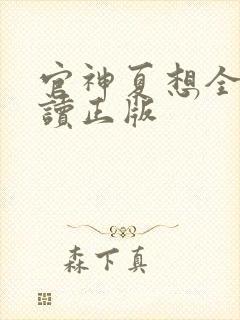 官神夏想全
讀正版
森下真